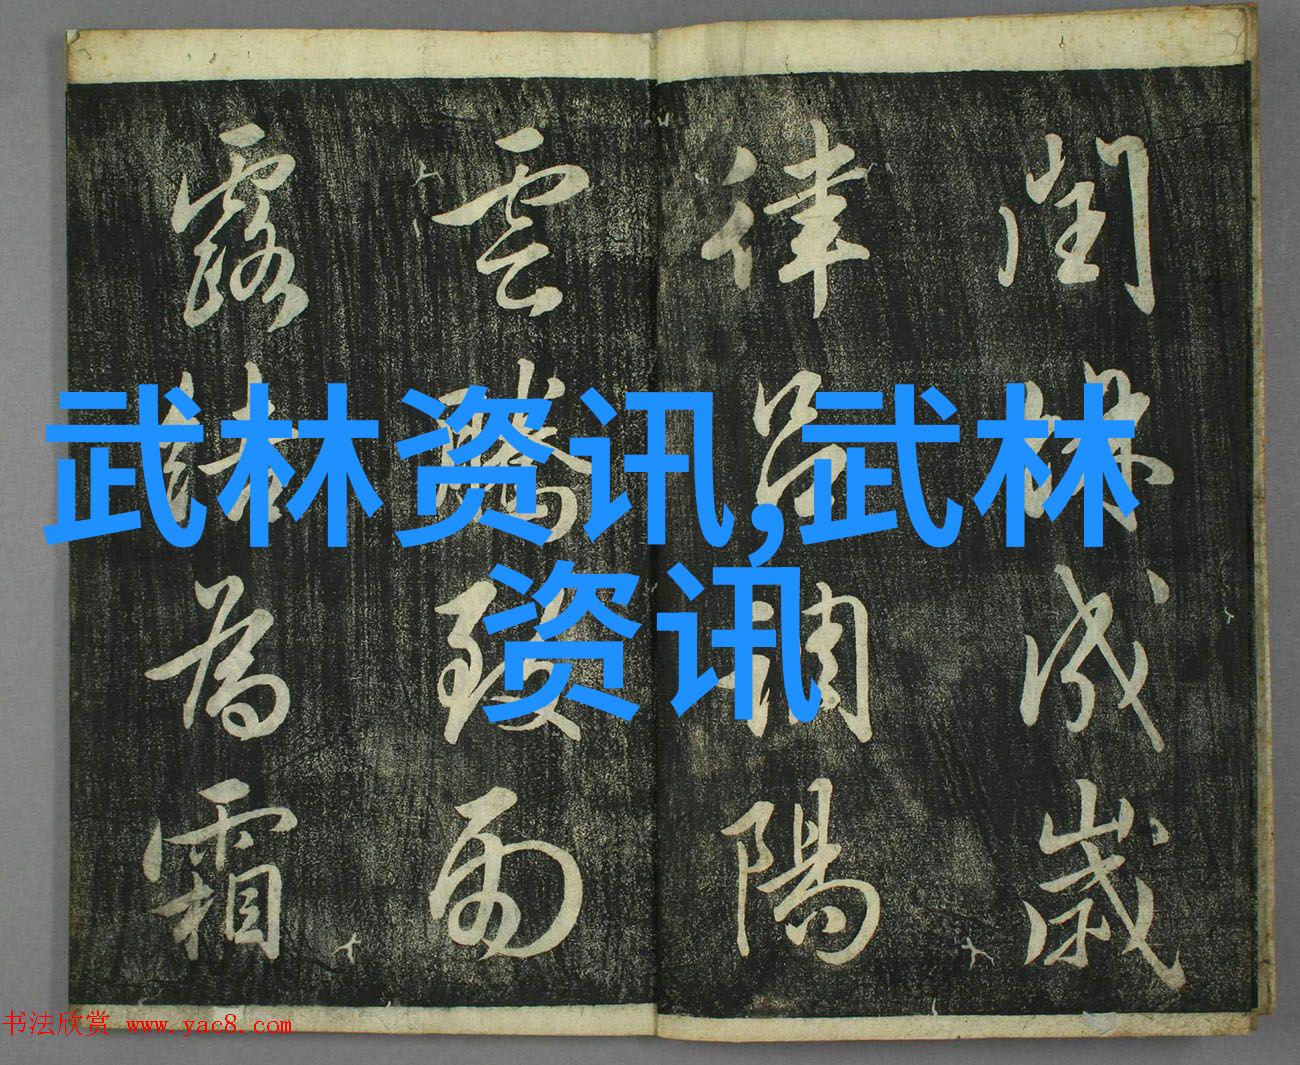 閏餘成歲
律呂調陽
雲騰致雨
露結為霜
武林资讯,武林
资讯
书法欣赏 www.yac8.com